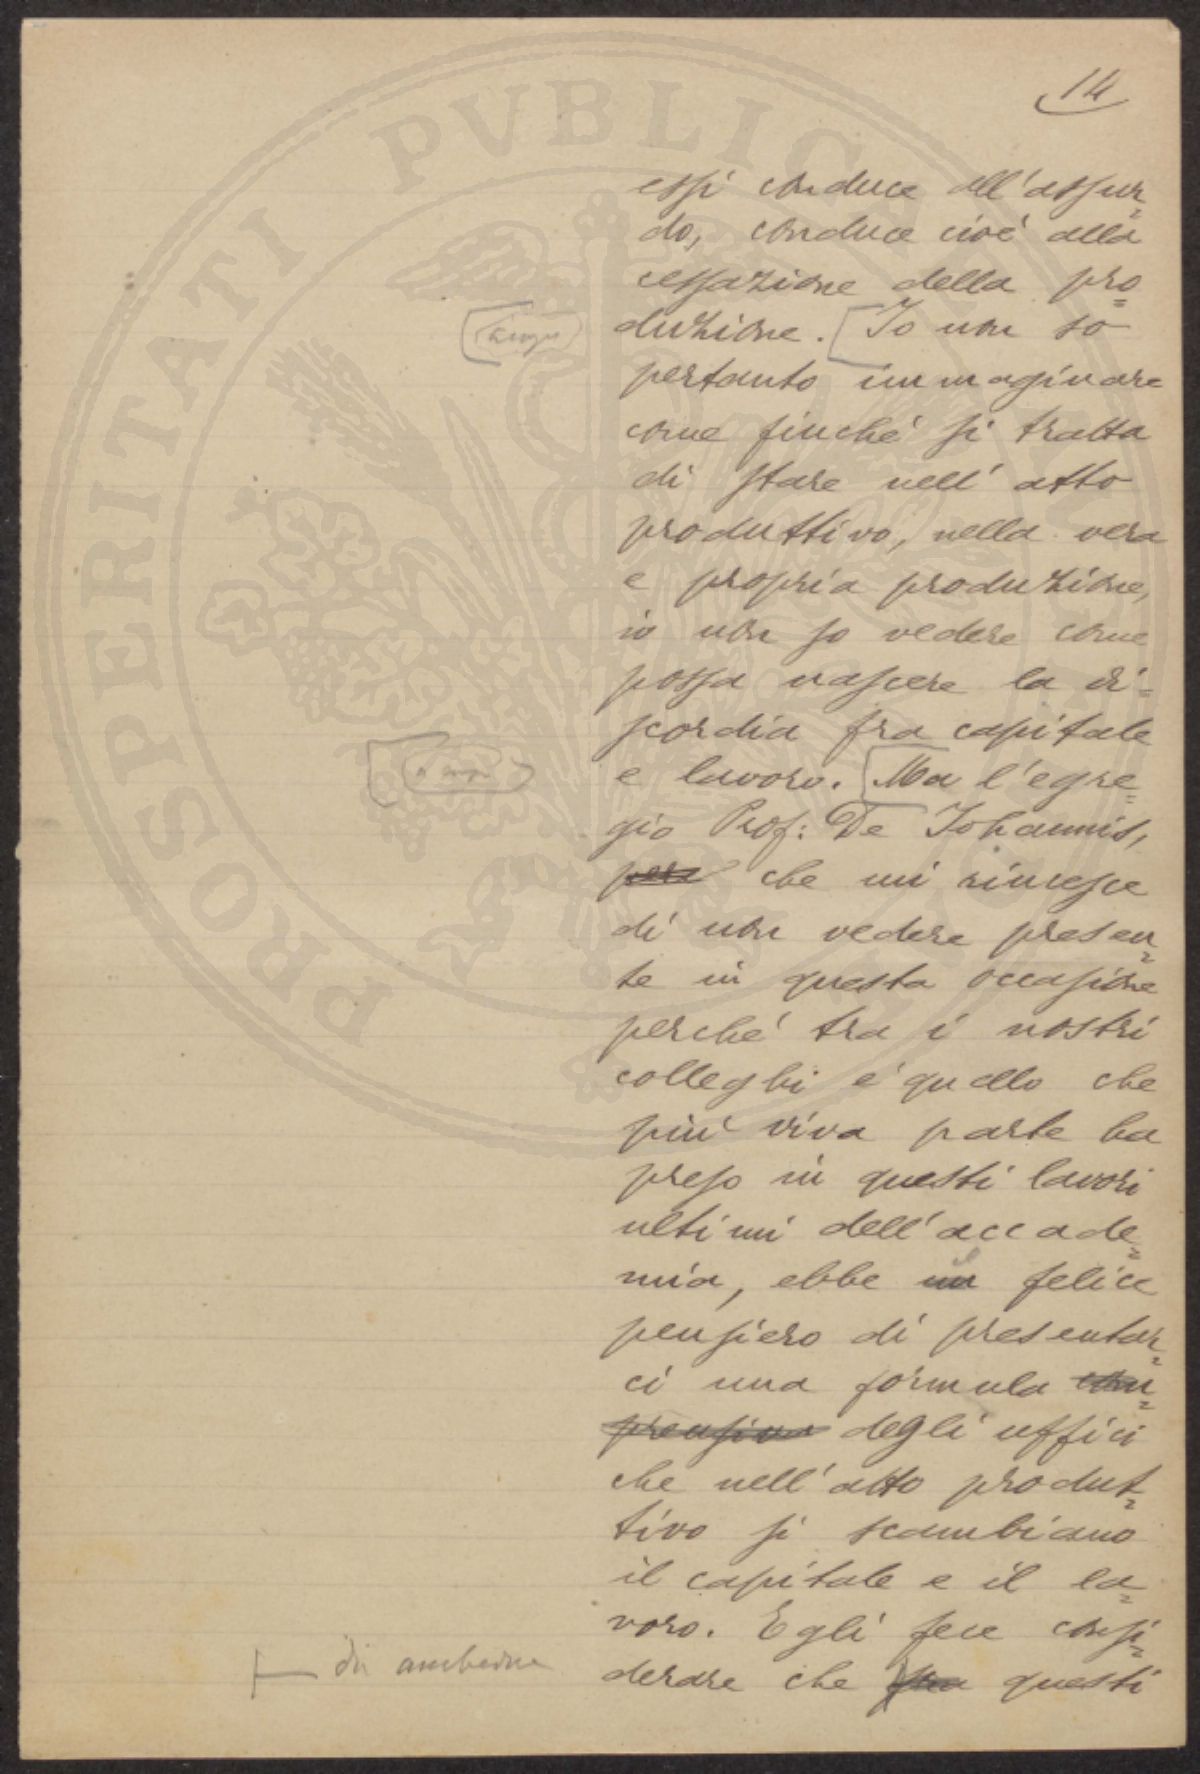 14
essi conduce all'assur=
do, conduce cioè alla
cessazione della pro=
duzione. [Io non so
pertanto immaginare
come finché si tratta
di stare nell'atto
produttivo, nella vera
e propria produzione,
io non so vedere come
possa nascere la di=
scordia fra capitale
e lavoro. [Ma l'egre=
gio Prof: De Johannis,
pera che mi rincresce
di non vedere presen=
te in questa occasione
perché tra i nostri
colleghi è quello che
più viva parte ha
preso in questi lavori
ultimi dell'accade=
mia, ebbe un felice
pensiero di presentar=
ci una formula com=
prensiva degli uffici
che nell'atto produt=
tivo si scambiano
il capitale e il la=
voro. Egli fece consi=
derare che fra questi
di ambedue
PROSPERITATI PVBLICAE